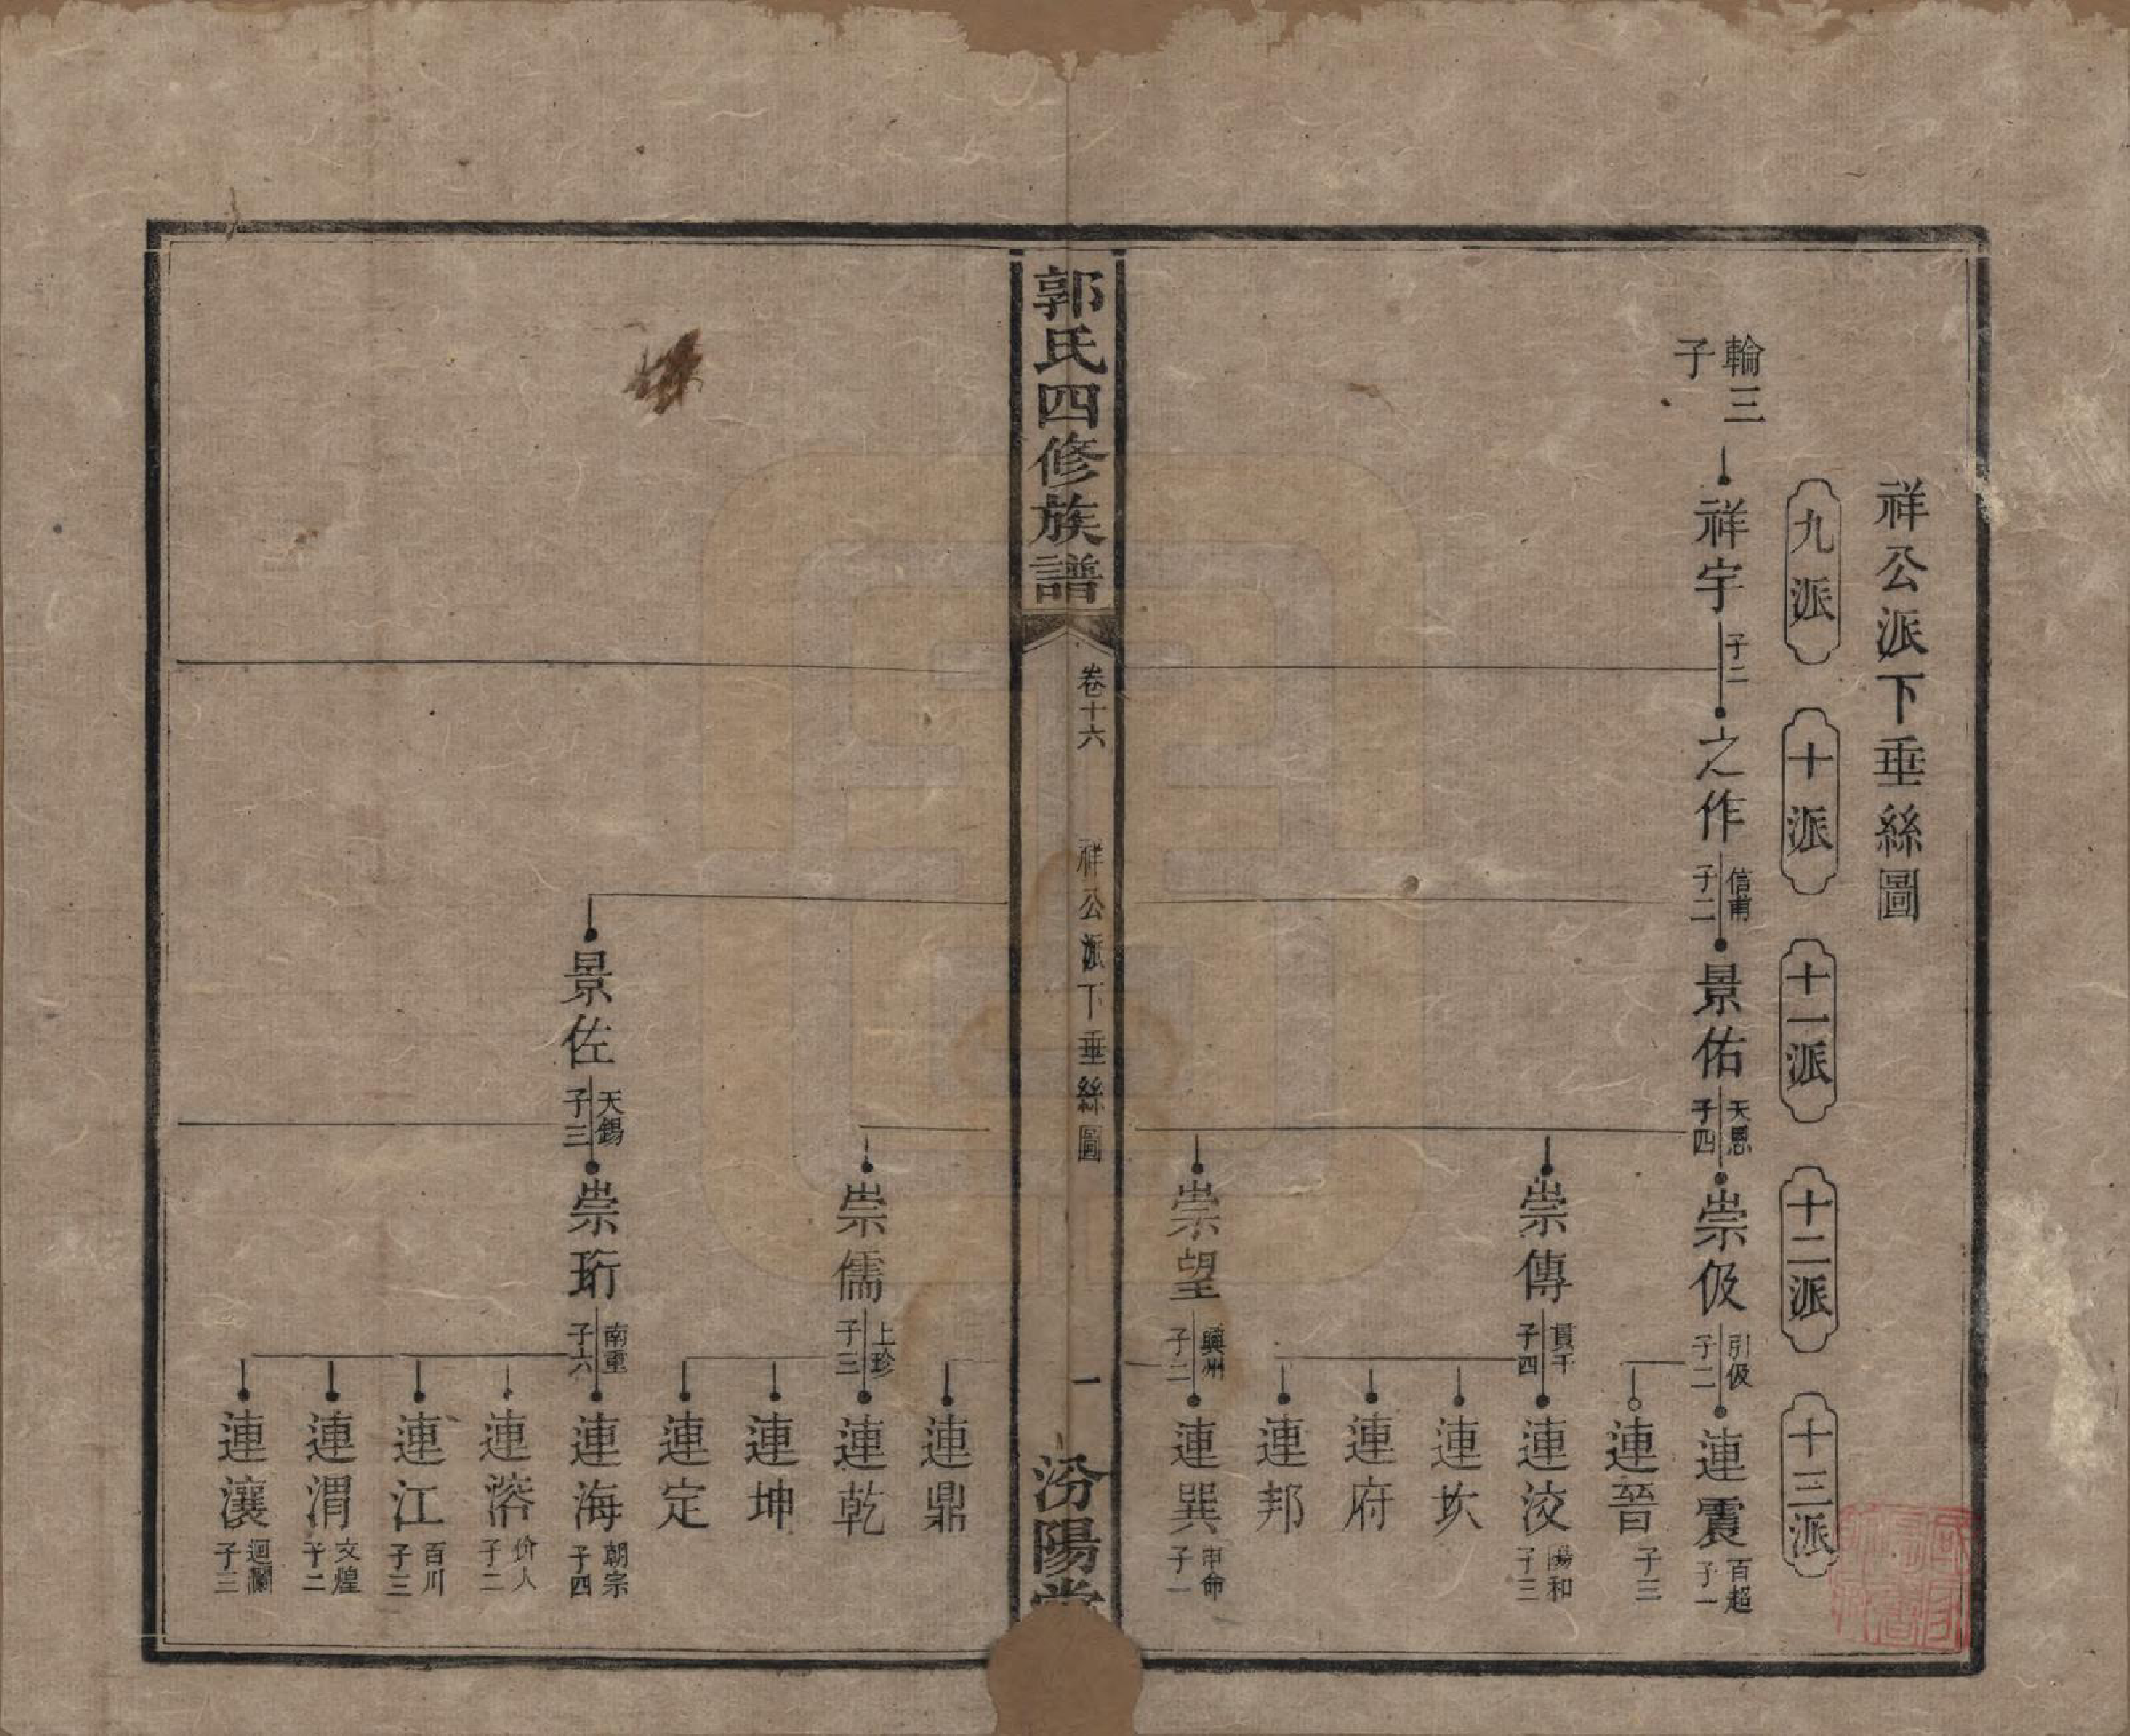 祥公派下垂絲圖
九派
十派
十一派
十二派
十三派
輪三子
祥宇
子二
之作
信甫
子二
景佑
天恩
子四
崇伋
引伋
子二
連震
百超
子一
連晉
子三
崇傳
貫千
子四
連洨
陽和
子三
連坎
連府
連邦
崇望
興州
子二
連巽
申命
子一
郭氏四修族譜
卷十六
祥公派下垂絲圖
一
汾陽堂
連鼎
崇儒
上珍
子三
連乾
連坤
連定
景佐
天錫
子三
崇珩
南重
子六
連海
朝宗
子四
連溶
价人
子二
連江
百川
子三
連渭
文煌
子二
連瀼
迴瀾
子三